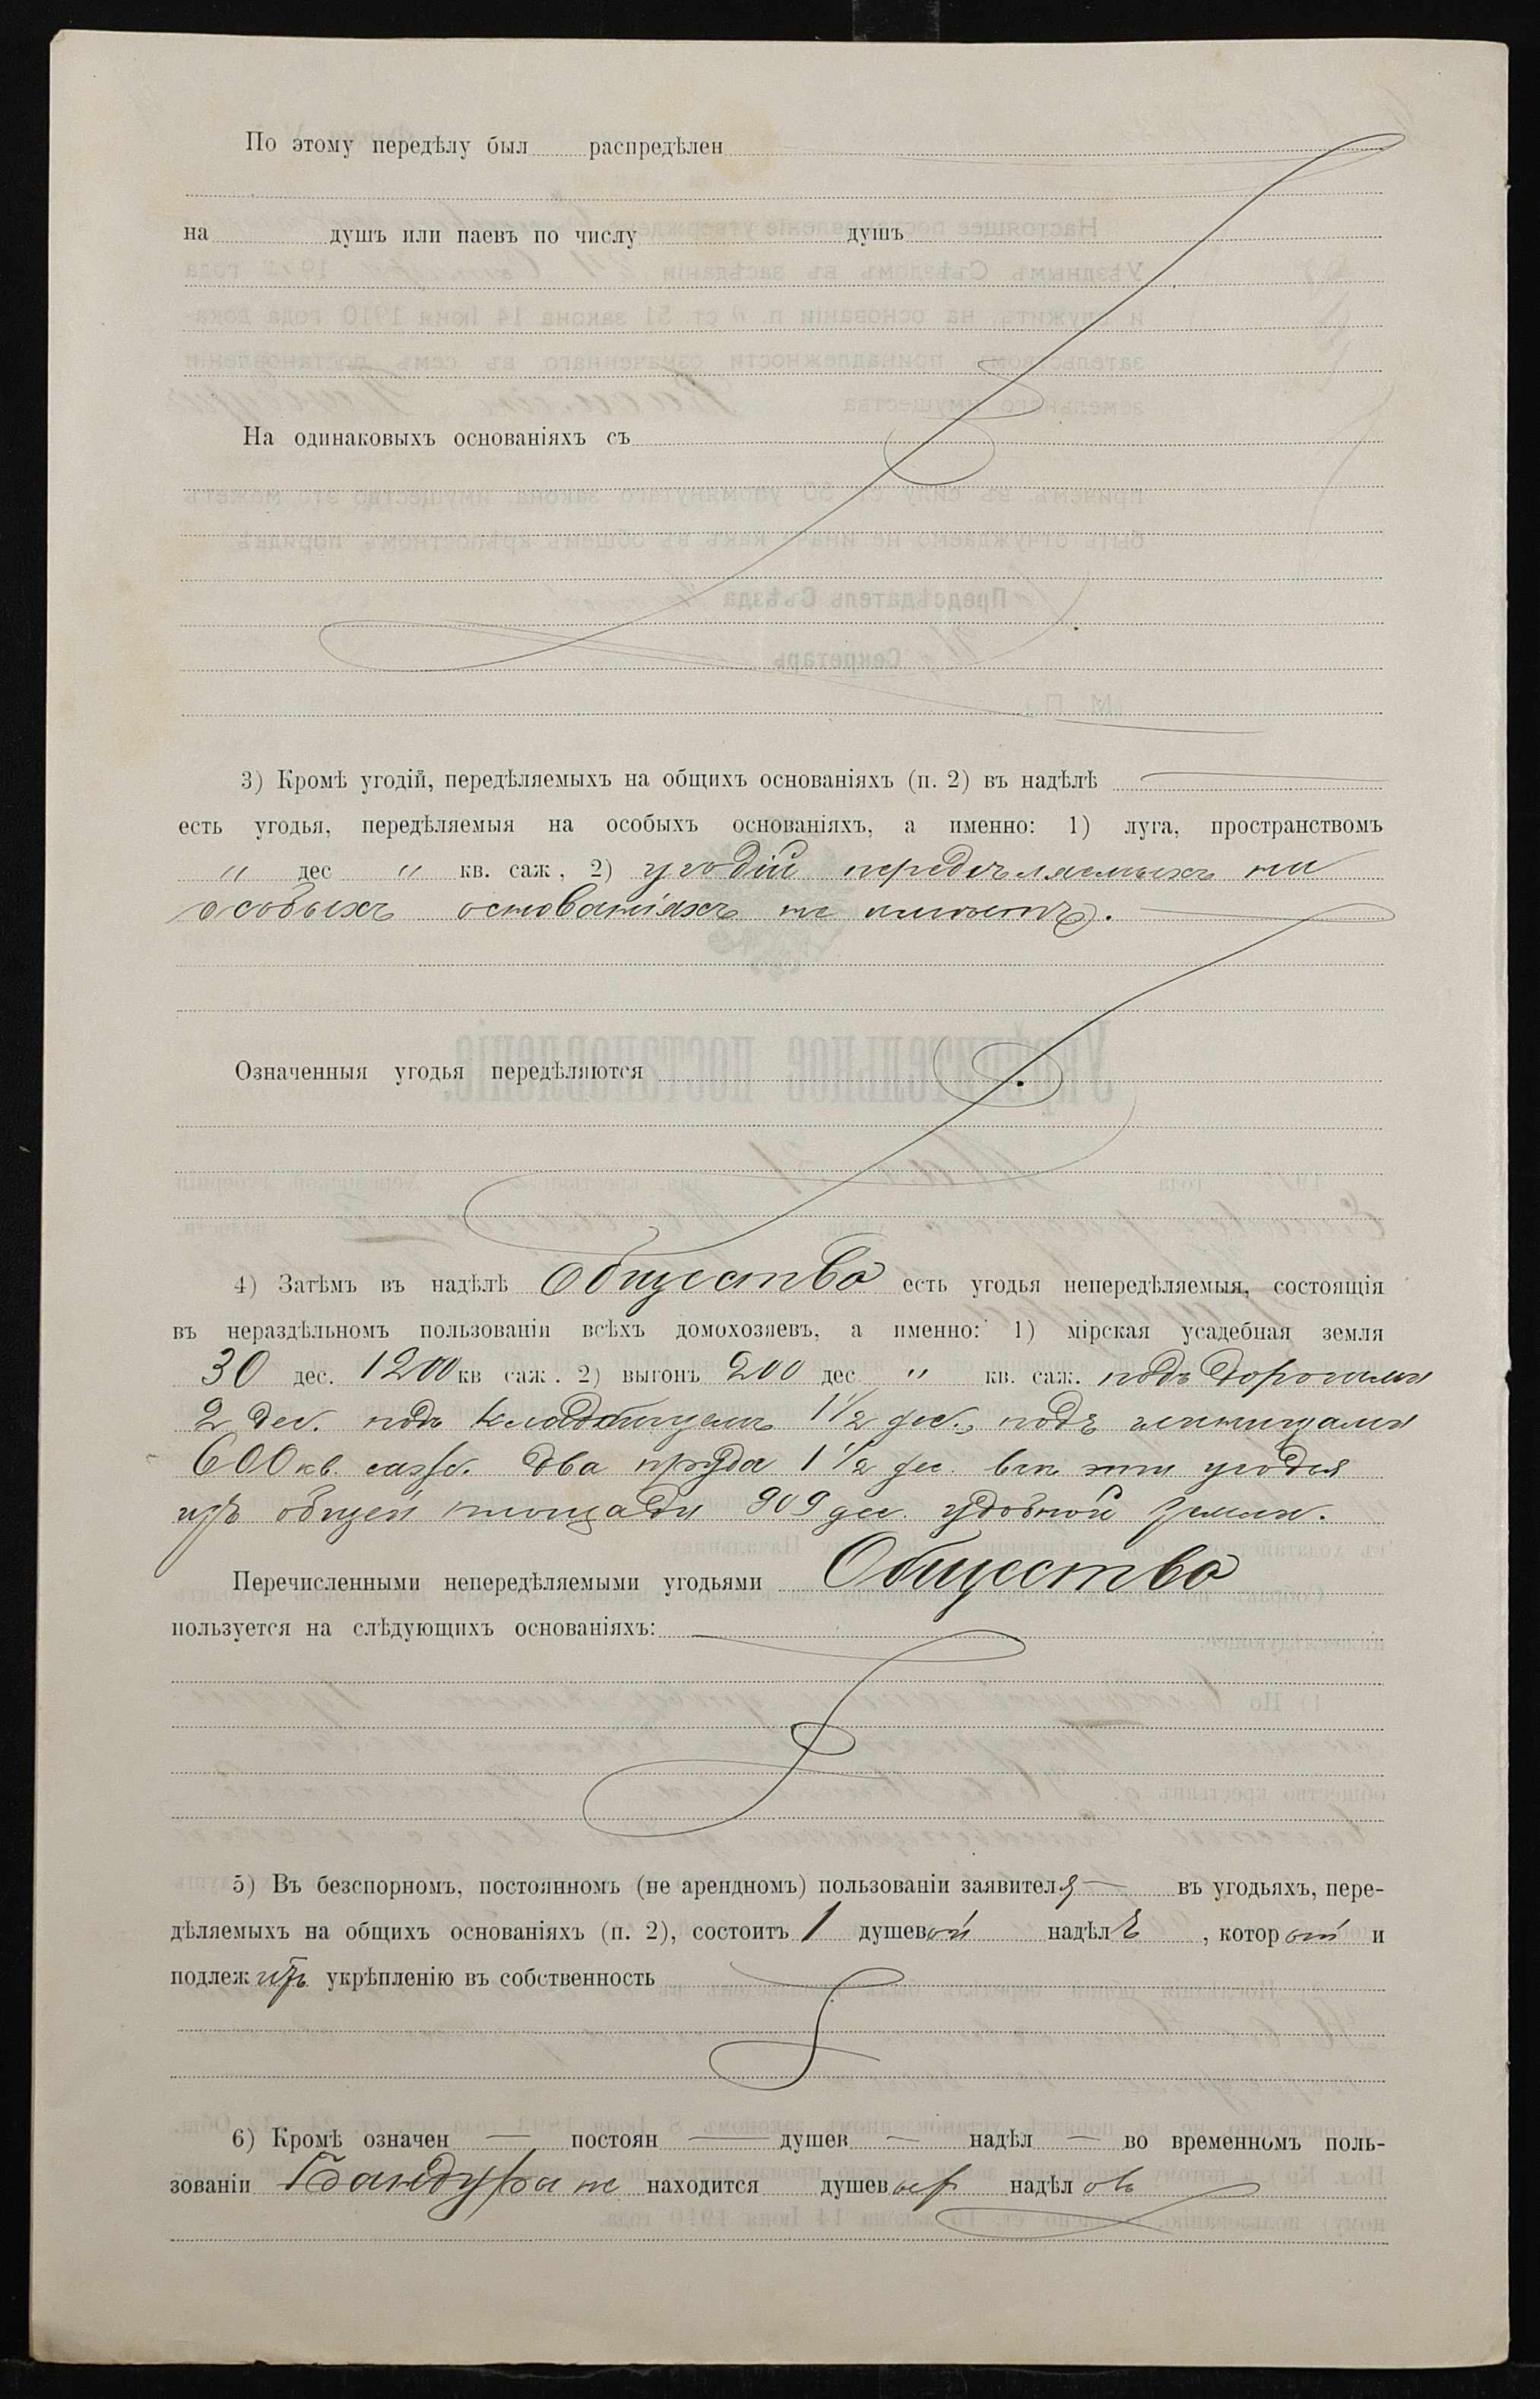 По этому передѣлу был распредѣлен
на душъ или паевъ по числу душъ
На одинаковыхъ основаніяхъ съ
3) Кромѣ угодій, передѣляемыхъ на общихъ основаніяхъ (п. 2) въ надѣлѣ
есть угодья, передѣляемыя на особыхъ основаніяхъ, а именно: 1) луга, пространствомъ
" дес " кв. саж, 2) угодій передѣляемыхъ на
особыхъ основаніяхъ не имѣетъ.
Означенныя угодья передѣляются
4) Затѣмъ въ надѣлѣ Общества есть угодья непередѣляемыя, состоящія
въ нераздѣльномъ пользованіи всѣхъ домохозяевъ, а именно: 1) мірская усадебная земля
30 дес. 1200 кв саж. 2) выгонъ 200 дес " кв. саж. подъ дорогами
2 дес. подъ кладбищемъ 1½ дес., подъ
600 кв. саж. два пруда 1½ дес. всѣ эти угодья
изъ общей площади 909 дес. удобной земли.
Перечисленными непередѣляемыми угодьями Общество
пользуется на слѣдующихъ основаніяхъ:
5) Въ безспорномъ, постоянномъ (не арендномъ) пользованіи заявителя въ угодьяхъ, пере-
дѣляемыхъ на общихъ основаніяхъ (п. 2), состоитъ 1 душевой надѣлъ, который и
подлежитъ укрѣпленію въ собственность
6) Кромѣ означен — постоян — душев — надѣл — во временномъ поль-
зованіи Бандура не находится душевыхъ надѣловъ